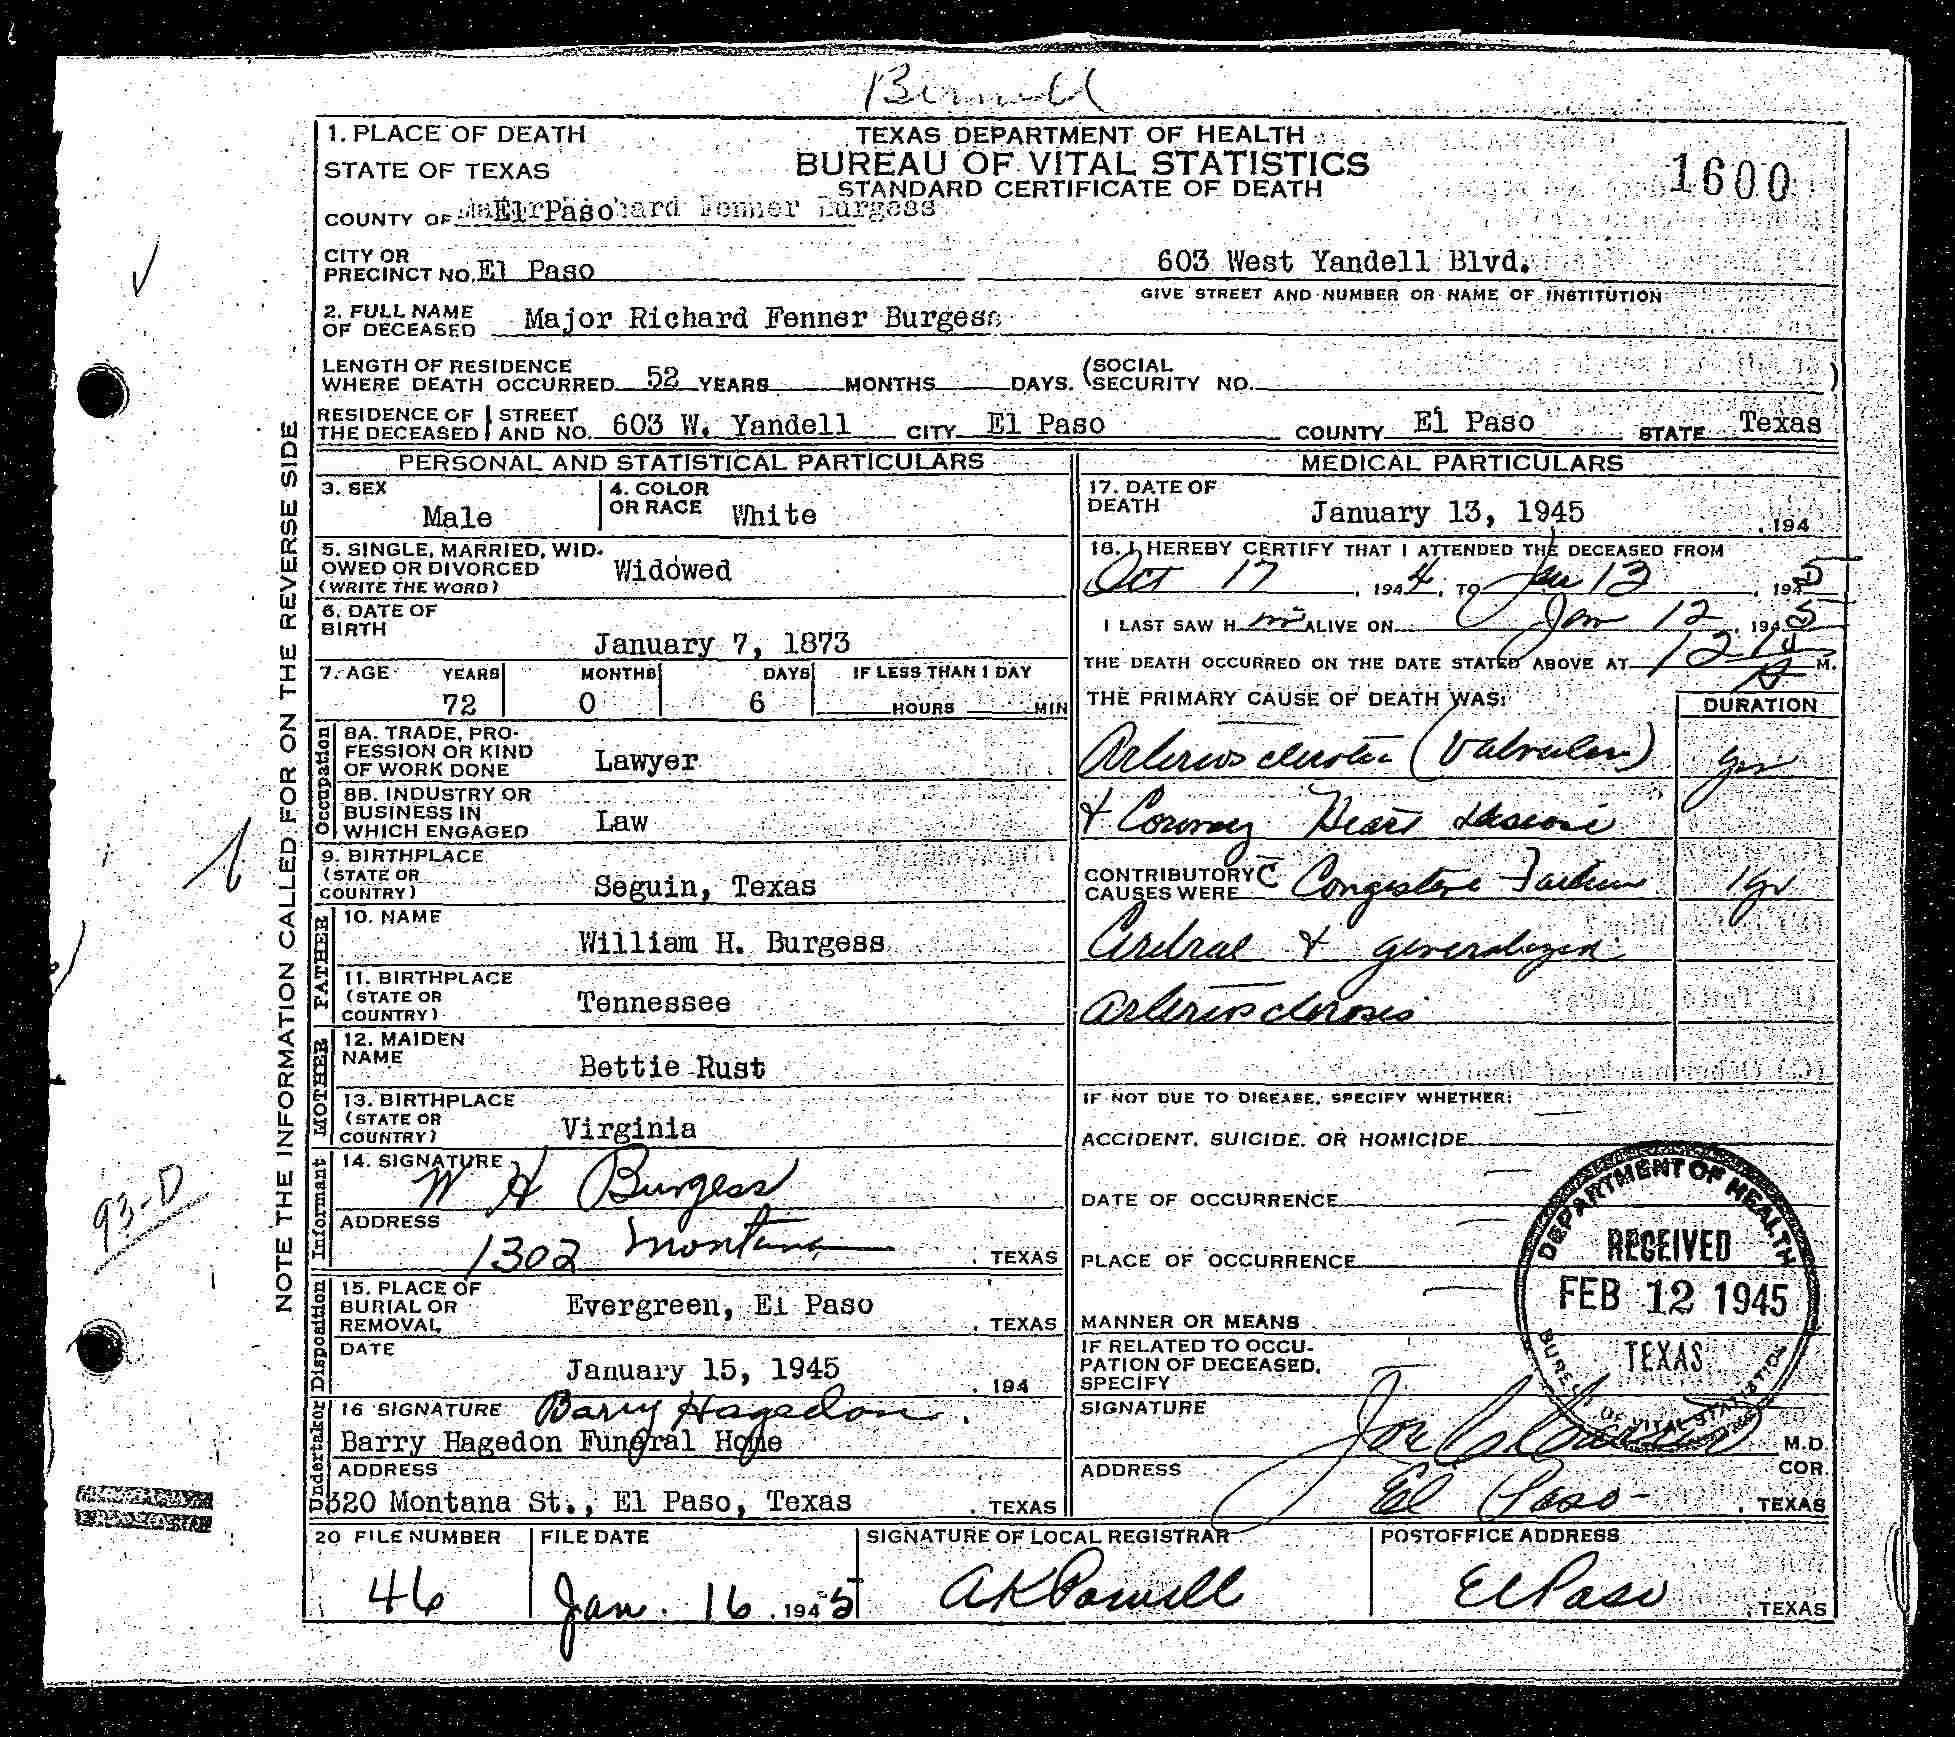 1. PLACE OF DEATH
STATE OF TEXAS
TEXAS DEPARTMENT OF HEALTH
BUREAU OF VITAL STATISTICS
STANDARD CERTIFICATE OF DEATH
1600
COUNTY OF El Paso
CITY OR
PRECINCT NO. El Paso
603 West Yandell Blvd.
GIVE STREET AND NUMBER OR NAME OF INSTITUTION
2. FULL NAME
OF DECEASED Major Richard Fenner Burgess
LENGTH OF RESIDENCE
WHERE DEATH OCCURRED 52 YEARS MONTHS DAYS. (SOCIAL SECURITY NO. )
RESIDENCE OF THE DECEASED STREET AND NO. 603 W. Yandell CITY El Paso COUNTY El Paso STATE Texas
PERSONAL AND STATISTICAL PARTICULARS
3. SEX Male
4. COLOR OR RACE White
5. SINGLE, MARRIED, WID-
OWED OR DIVORCED
(WRITE THE WORD) Widowed
6. DATE OF
BIRTH January 7, 1873
7. AGE YEARS MONTHS DAYS IF LESS THAN 1 DAY
72 0 6 HOURS MIN
Occupation
8A. TRADE, PRO-
FESSION OR KIND
OF WORK DONE Lawyer
8B. INDUSTRY OR
BUSINESS IN
WHICH ENGAGED Law
9. BIRTHPLACE
(STATE OR
COUNTRY) Seguin, Texas
FATHER
10. NAME
William H. Burgess
11. BIRTHPLACE
(STATE OR
COUNTRY) Tennessee
MOTHER
12. MAIDEN
NAME Bettie Rust
13. BIRTHPLACE
(STATE OR
COUNTRY) Virginia
Informant
14. SIGNATURE W H Burgess
ADDRESS
1302 Montana , TEXAS
Disposition
15. PLACE OF
BURIAL OR
REMOVAL Evergreen, El Paso , TEXAS
DATE
January 15, 1945 , 194
Undertaker
16 SIGNATURE Barry Hagedon
Barry Hagedon Funeral Home
ADDRESS
320 Montana St., El Paso, Texas , TEXAS
MEDICAL PARTICULARS
17. DATE OF
DEATH January 13, 1945 , 194
18. I HEREBY CERTIFY THAT I ATTENDED THE DECEASED FROM
Oct 17, 1944, TO Jan 13, 1945
I LAST SAW H im ALIVE ON Jan 12, 1945
THE DEATH OCCURRED ON THE DATE STATED ABOVE AT 12 15 A M.
THE PRIMARY CAUSE OF DEATH WAS: DURATION
Arteriosclerotic (Valvular) yrs
& Coronary Heart disease
CONTRIBUTORY
CAUSES WERE Congestive Failure 1 yr
Cerebral & generalized
arteriosclerosis
IF NOT DUE TO DISEASE, SPECIFY WHETHER:
ACCIDENT, SUICIDE, OR HOMICIDE
DATE OF OCCURRENCE
PLACE OF OCCURRENCE
MANNER OR MEANS
IF RELATED TO OCCU-
PATION OF DECEASED,
SPECIFY
SIGNATURE M.D.
COR.
ADDRESS El Paso , TEXAS
DEPARTMENT OF HEALTH
RECEIVED
FEB 12 1945
TEXAS
BUREAU OF VITAL STATISTICS
20 FILE NUMBER FILE DATE SIGNATURE OF LOCAL REGISTRAR POSTOFFICE ADDRESS
46 Jan. 16, 1945 AK Powell El Paso , TEXAS
NOTE THE INFORMATION CALLED FOR ON THE REVERSE SIDE
93-D